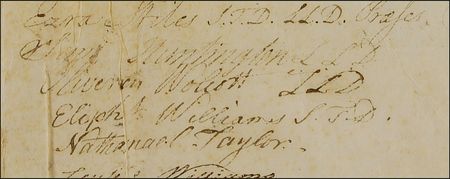 Ezra Stiles S.T.D. LL.D. Præses.
Huntington LLD
Oliverus Wolcott LLD
Eliph. Williams S.T.D.
Nathanael Taylor.
Williams